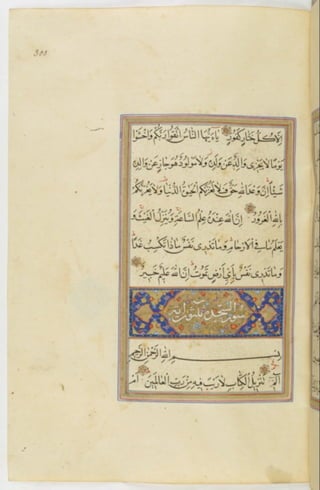 إلا كل ختار كفور يا أيها الناس اتقوا ربكم واخشوا
يوما لا يجزي والد عن ولده ولا مولود هو جاز عن والده
شيئا إن وعد الله حق فلا تغرنكم الحيوة الدنيا ولا يغرنكم
بالله الغرور إن الله عنده علم الساعة وينزل الغيث و
يعلم ما في الأرحام وما تدري نفس ماذا تكسب غدا
وما تدري نفس بأي أرض تموت إن الله عليم خبير
سورة السجدة ثلثون آية
بسم الله الرحمن الرحيم
الم تنزيل الكتاب لا ريب فيه من رب العالمين أم